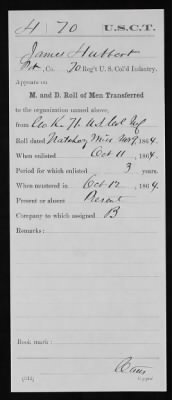 H 70 U.S.C.T.
James Hubbert
Pvt, Co. 70 Reg't U. S. Col'd Infantry.
Appears on
M. and D. Roll of Men Transferred
to the organization named above,
from Co. K.
Roll dated Natchez Miss Nov 9, 1864.
When enlisted Oct 11, 1864.
Period for which enlisted 3 years.
When mustered in Oct 12, 1864.
Present or absent Present
Company to which assigned B
Remarks:
Book mark:
(543) Copyist.